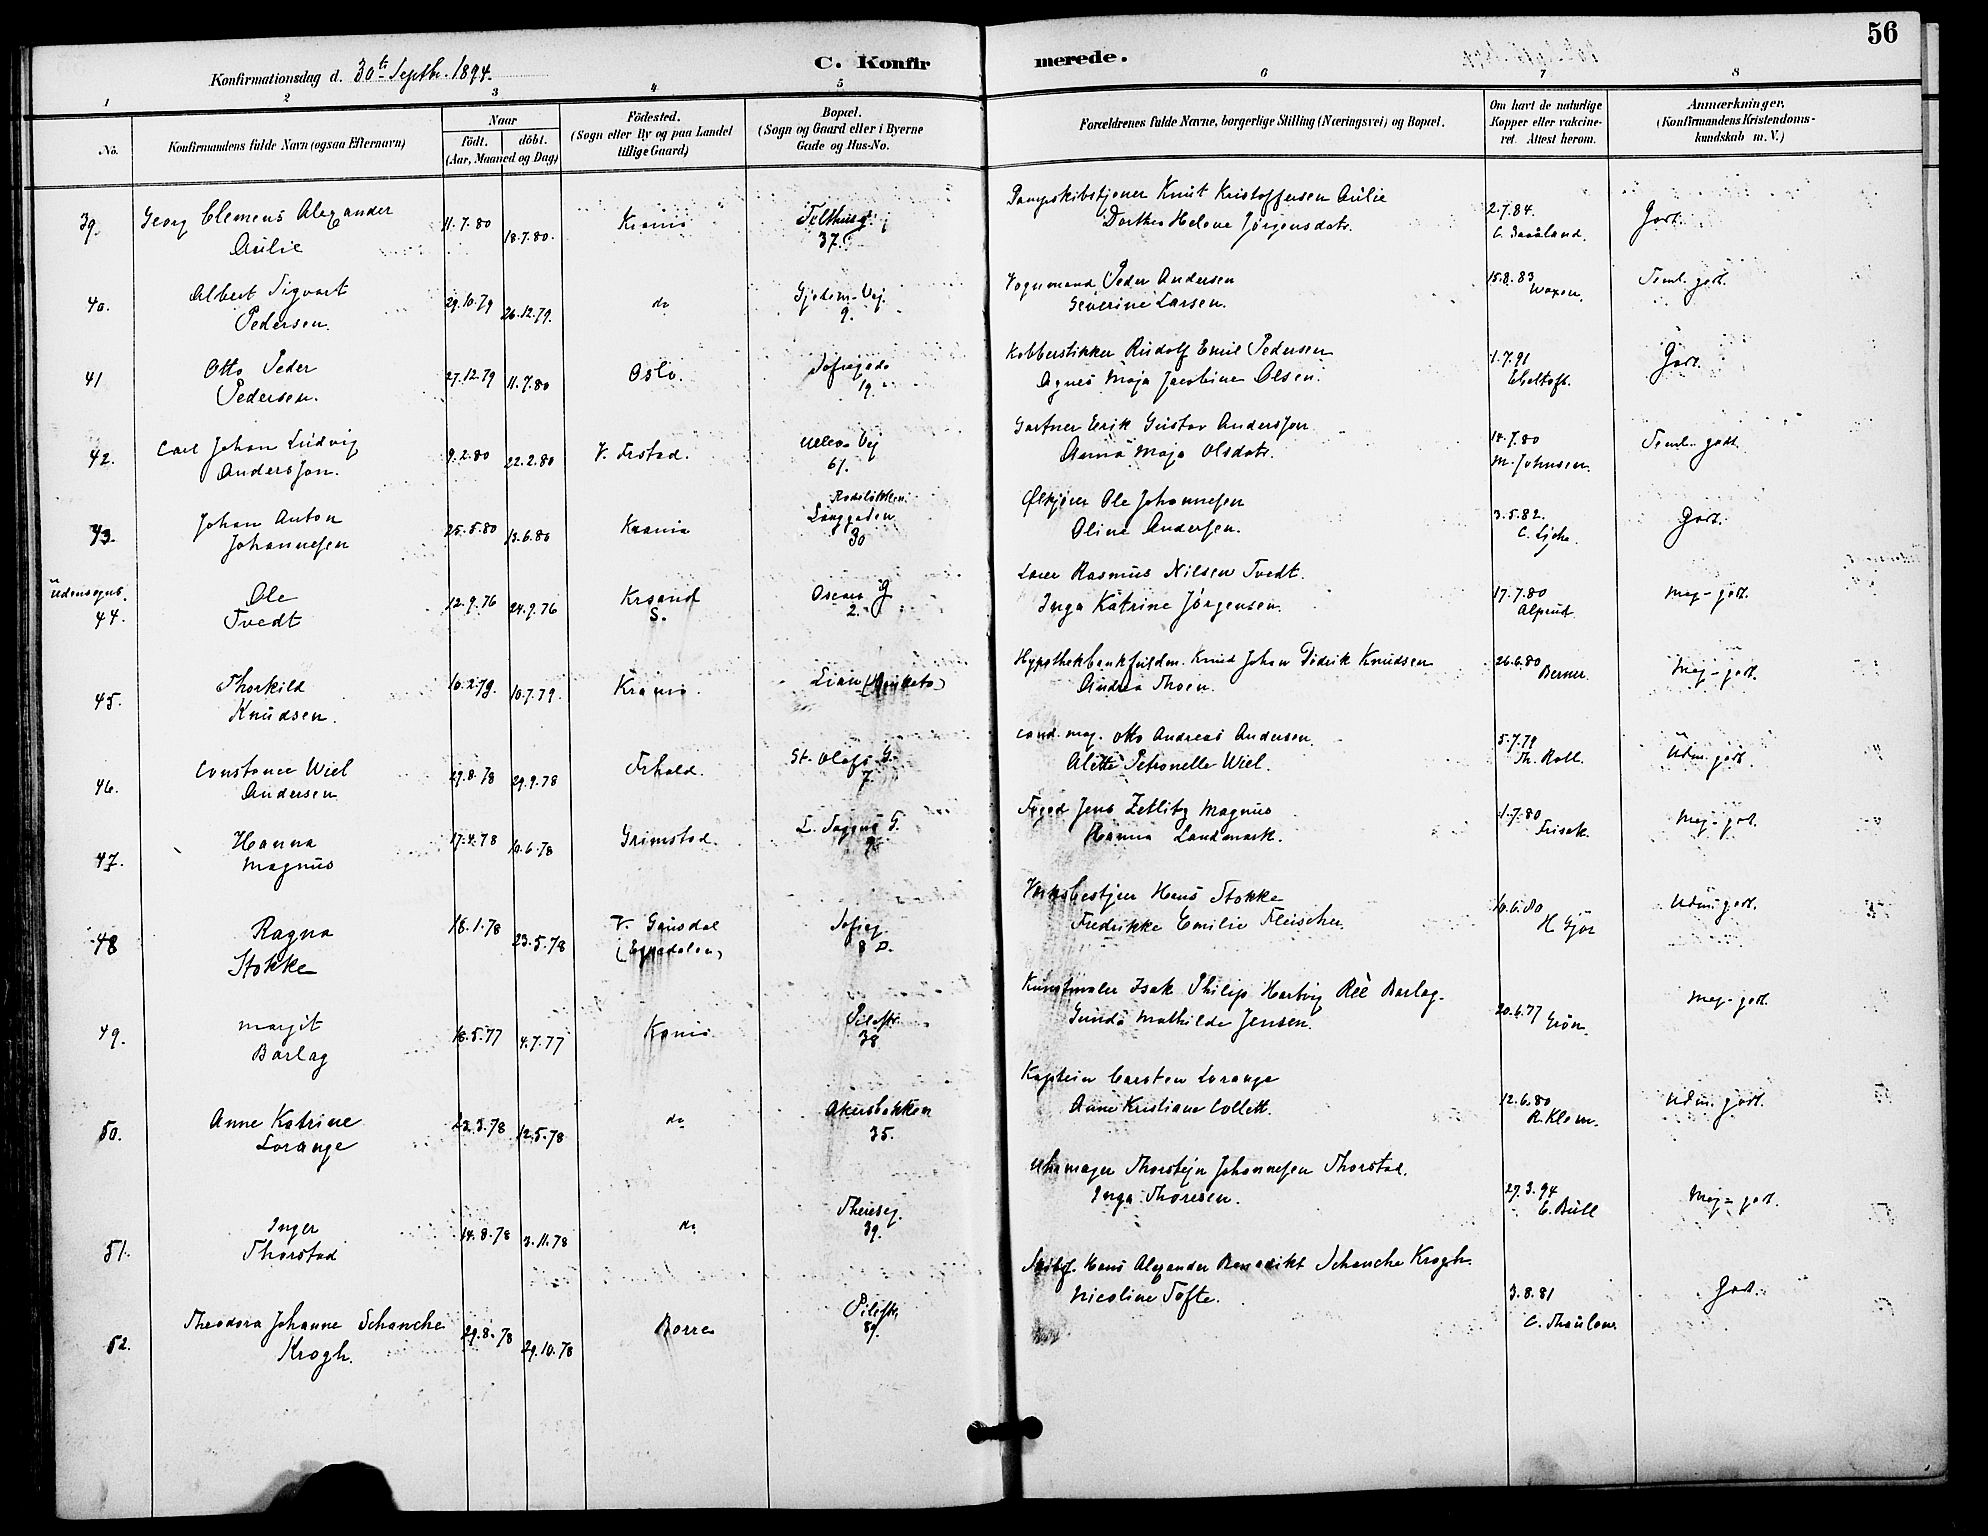 56
Konfirmationsdag d. 30te Septbr. 1894.
C. Konfirmerede.
1 2 3 4 5 6 7 8
No.
Konfirmandens fulde Navn (ogsaa Efternavn)
Naar
födt. döbt.
(Aar, Maaned og Dag)
Födested.
(Sogn eller By og paa Landet
tillige Gaard)
Bopæl.
(Sogn og Gaard eller i Byerne
Gade og Hus-No.
Forældrenes fulde Navne, borgerlige Stilling (Næringsvei) og Bopæl.
Om havt de naturlige
Kopper eller vakcine-
ret. Attest herom.
Anmærkninger.
(Konfirmandens Kristendoms-
kundskab m. V.)
39. Georg Clemens Alexander 11.7.80 18.7.80. Krania Telthusg. Dampskibstjener Knut Kristoffersen Aulie 2.7.84. Godt.
Aulie 37. Dorthea Helene Jörgensdatr.
40. Albert Sigvart 29.10.79 26.12.79. do Vognmand Peder Andersen 15.8.83 Teml. godt.
Pedersen. 9. Severine Larsen.
41 Otto Peder 27.12.79 11.7.80 Oslo. Sofiegade Kobberstikker Rudolf Emil Pedersen 1.7.91 Godt.
Pedersen. 19. Agnes Maja Jacobine Olsen. Ebeltoft.
42. Carl Johan Ludvig 9.2.80 22.2.80 Ullev. Vej Gartner Erik Gustav Andersson Teml. godt.
Andersson. 61. Anna Maja Olsdatr. M. Johnsen.
43. Johan Anton 25.5.80 13.6.80 Krania Rodeløkken Ole Johannesen 3.5.82. Godt.
Johannesen Langgaden Oline Andersen.
30
Udensogns.
44. Ole 12.9.76 24.9.76 Krsand Oscars G Rasmus Nilsen Tvedt. 17.7.80 Meg. godt.
Tvedt S. 2. Inga Katrine Jörgensen.
45. Thorkild 10.2.79. 10.7.79. Krania Lian Hypothekbankfuldm. Knud Johan Didrik Knudsen 26.6.80 Berner. Meg. godt.
Knudsen. Andrea Thoen.
46. Constance Wiel 29.8.78 29.9.78 Frhald. St. Olafs G. cand. mag. Otto Andreas Andersen. 5.7.79 Udm. godt.
Andersen 7. Alette Petronelle Wiel. Th. Roll.
47. Hanna 17.4.78 10.6.78 Grimstad. Foged Jens Zetlitz Magnus 1.7.80 Meg. godt.
Magnus 9. Hanna Landmark.
48 Ragna 18.1.78 23.5.78 V. Gausdal Sofieg. Hans Stokke 10.6.80 Udm. godt.
Stokke 8 D. Fredrikke Emilie Fleischer.
49. Margit 18.5.77 4.7.77 Krania Pilestr. Kunstmaler Isak Philip Hartvig Rée Barlag. 20.6.77 Meg. godt.
Barlag 38 Gunda Mathilde Jensen.
50. Anne Katrine 23.3.78 12.5.78 do Akersbakken Kaptein Carsten Lorange 12.6.80 Udm. godt.
Lorange 35. Anne Kristiane Collett. R. Klem.
51. Inger 14.8.78 3.11.78 do Thereseg. Uhrmager Thorstejn Johannesen Thorstad. 27.3.94 Meg. godt.
Thorstad 39. Inga Thoresen. E. Bull
52. Theodora Johanne Schanche 29.8.78 29.10.78 Borre Pilestr. Hans Alexander Benedikt Schanche Krogh. 3.8.81 Godt.
Krogh. Nicoline Tofte. C. Thaulow